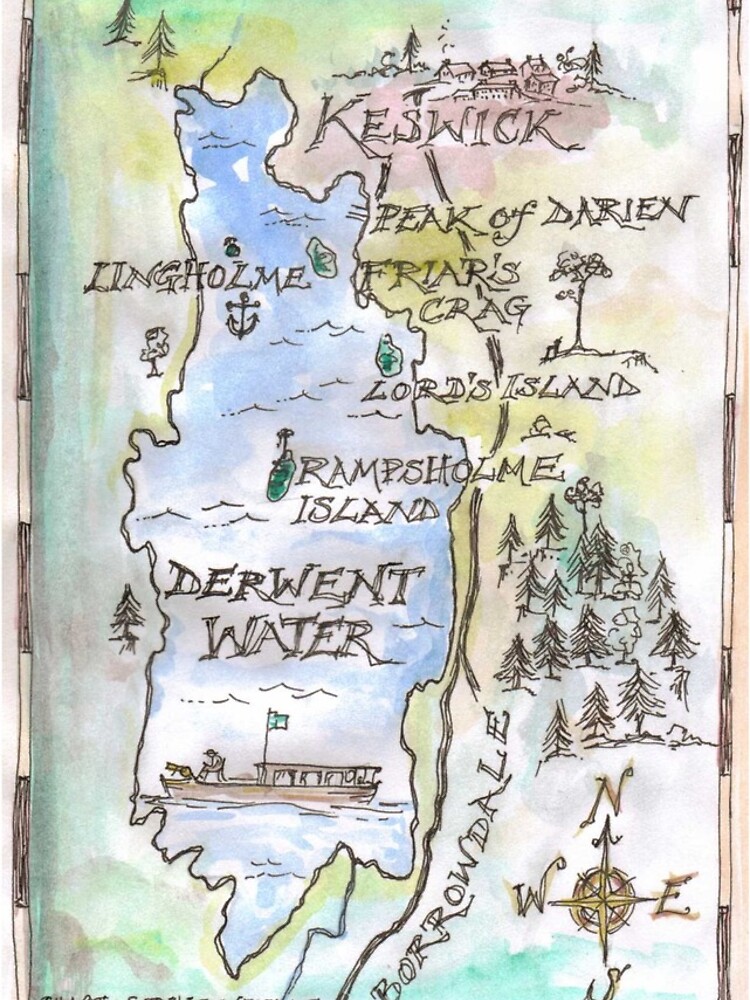 KESWICK
PEAK of DARIEN
LINGHOLME
FRIAR'S
CRAG
LORD'S ISLAND
RAMPSHOLME
ISLAND
DERWENT
WATER
BORROWDALE
N
W E